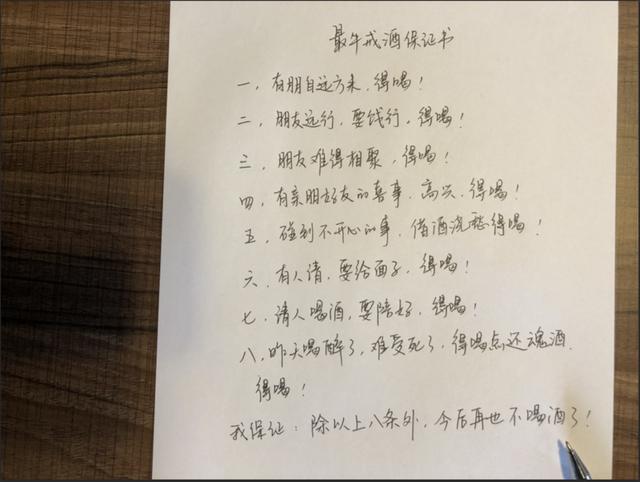 最牛戒酒保证书
一，有朋自远方来，得喝！
二，朋友远行，要饯行，得喝！
三，朋友难得相聚，得喝！
四，有亲朋好友的喜事，高兴，得喝！
五，碰到不开心的事，借酒浇愁得喝！
六，有人请，要给面子，得喝！
七，请人喝酒，要陪好，得喝！
八，昨天喝醉了，难受死了，得喝点还魂酒，
得喝！
我保证：除以上八条外，今后再也不喝酒了！